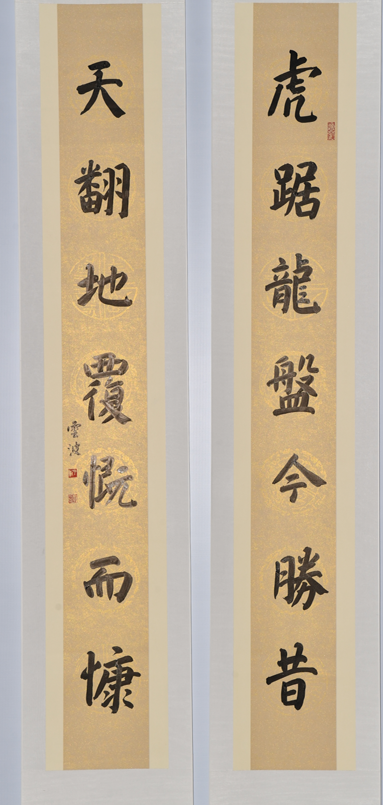 虎踞龍盤今勝昔
天翻地覆慨而慷
雲波